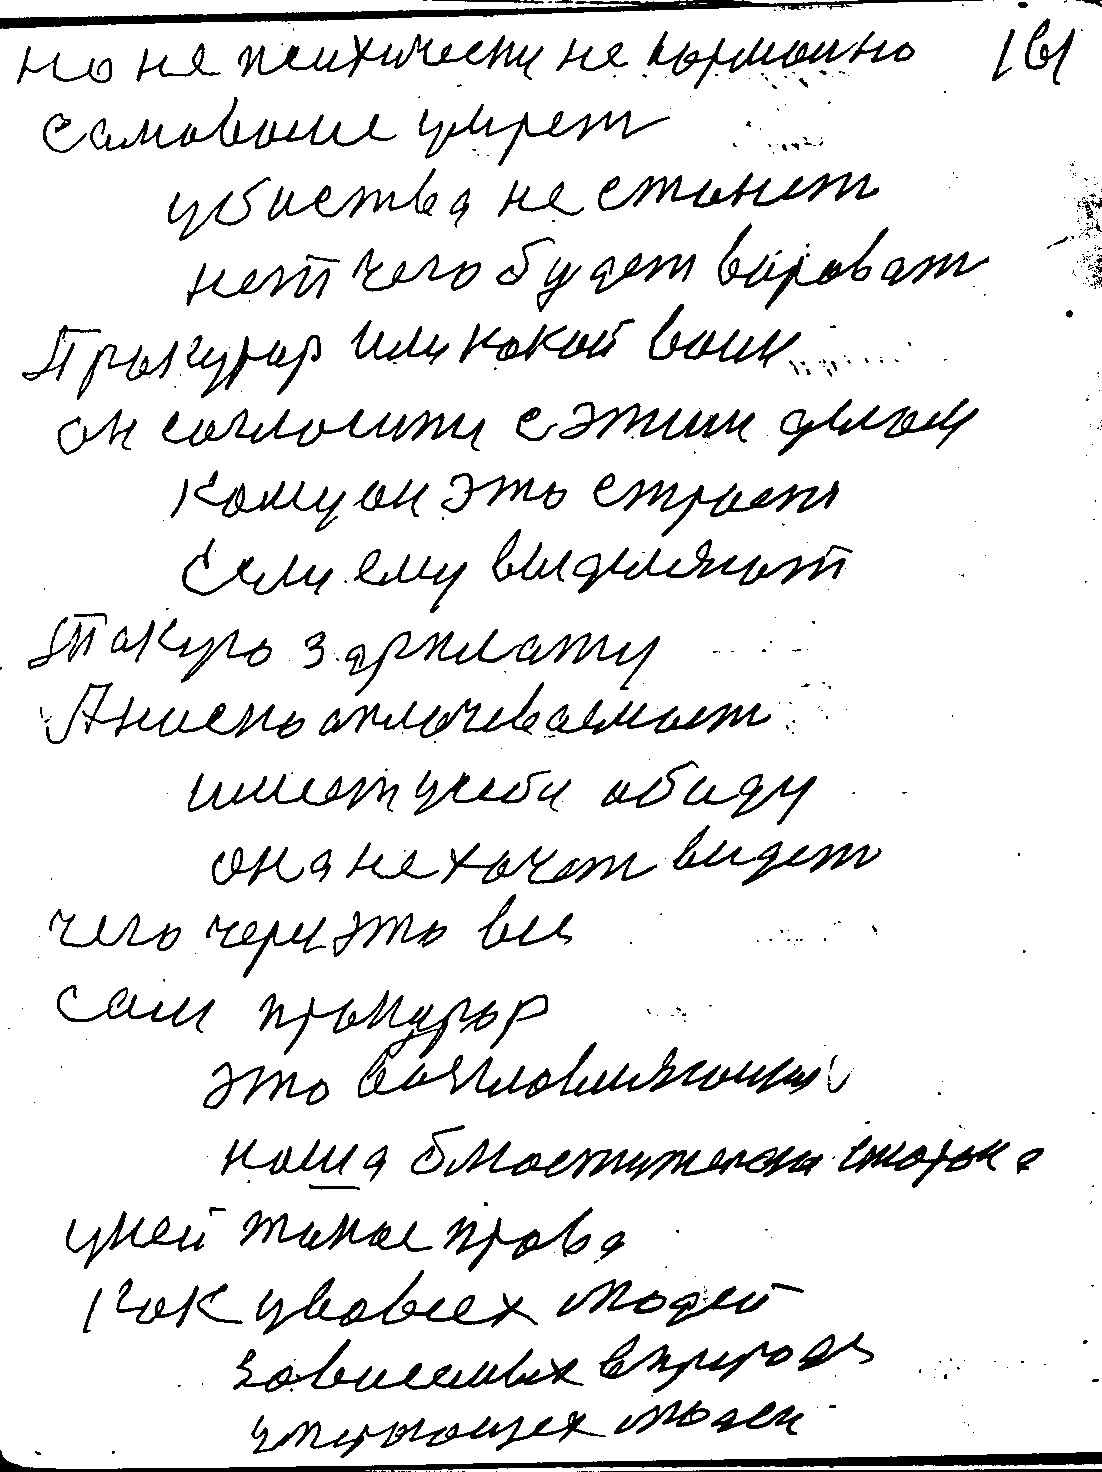 но не психически не нормально 161
само воине умрет
убиства не станет
нет чего будет вироват
Прокурор или какой воин
он согласити с этим делом
кому он это строет
Если ему выделяют
Такую зарплату
А на оплачевает
имеет у себи обиду
она не хочет видет
чего чери это все
сам прокурор
это возглавляющи
наша сторона
у ней такое права
как у всех людей
зависемых в природе
людей